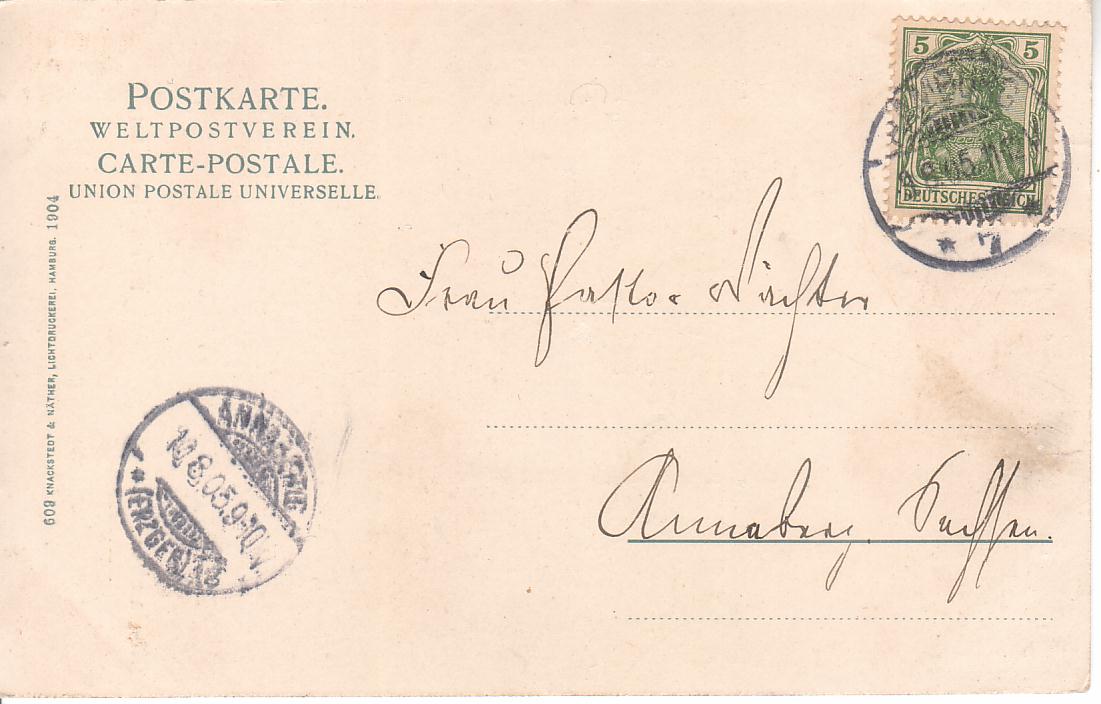 POSTKARTE.
WELTPOSTVEREIN.
CARTE-POSTALE.
UNION POSTALE UNIVERSELLE.
609 KNACKSTEDT & NÄTHER, LICHTDRUCKEREI, HAMBURG. 1904
5 5
DEUTSCHES REICH
* 7
Frau Pastor Wächter
Annaberg, Sachsen.
10.8.05.9-10V.
* (ERZGEB.)